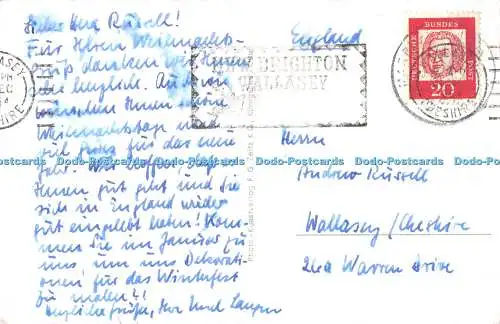 Lieber Herr Russell!
Für Ihren Weihnachts-
gruß danken wir Ihnen
herzlich. Auch wir
wünschen Ihnen schöne
Weihnachtstage und
viel für das neue
Jahr. Wir hoffen, daß es
Ihnen gut geht und Sie
sich in England wieder
gut eingelebt haben! Kom-
men Sie im Januar zu
uns, um uns Dekorati-
onen für das Winterfest
zu malen?!
Herzliche Grüße, Ihre
England
BRIGHTON
WALLASEY
DEUTSCHE
BUNDES
POST
20
Herrn
Andrew Russell
Wallasey/Cheshire
24a Warren Drive
Dodo-Postcards Dodo-Postcards Dodo-Postcards Dodo-Postcards Dodo-Postcards Dodo-Postcards